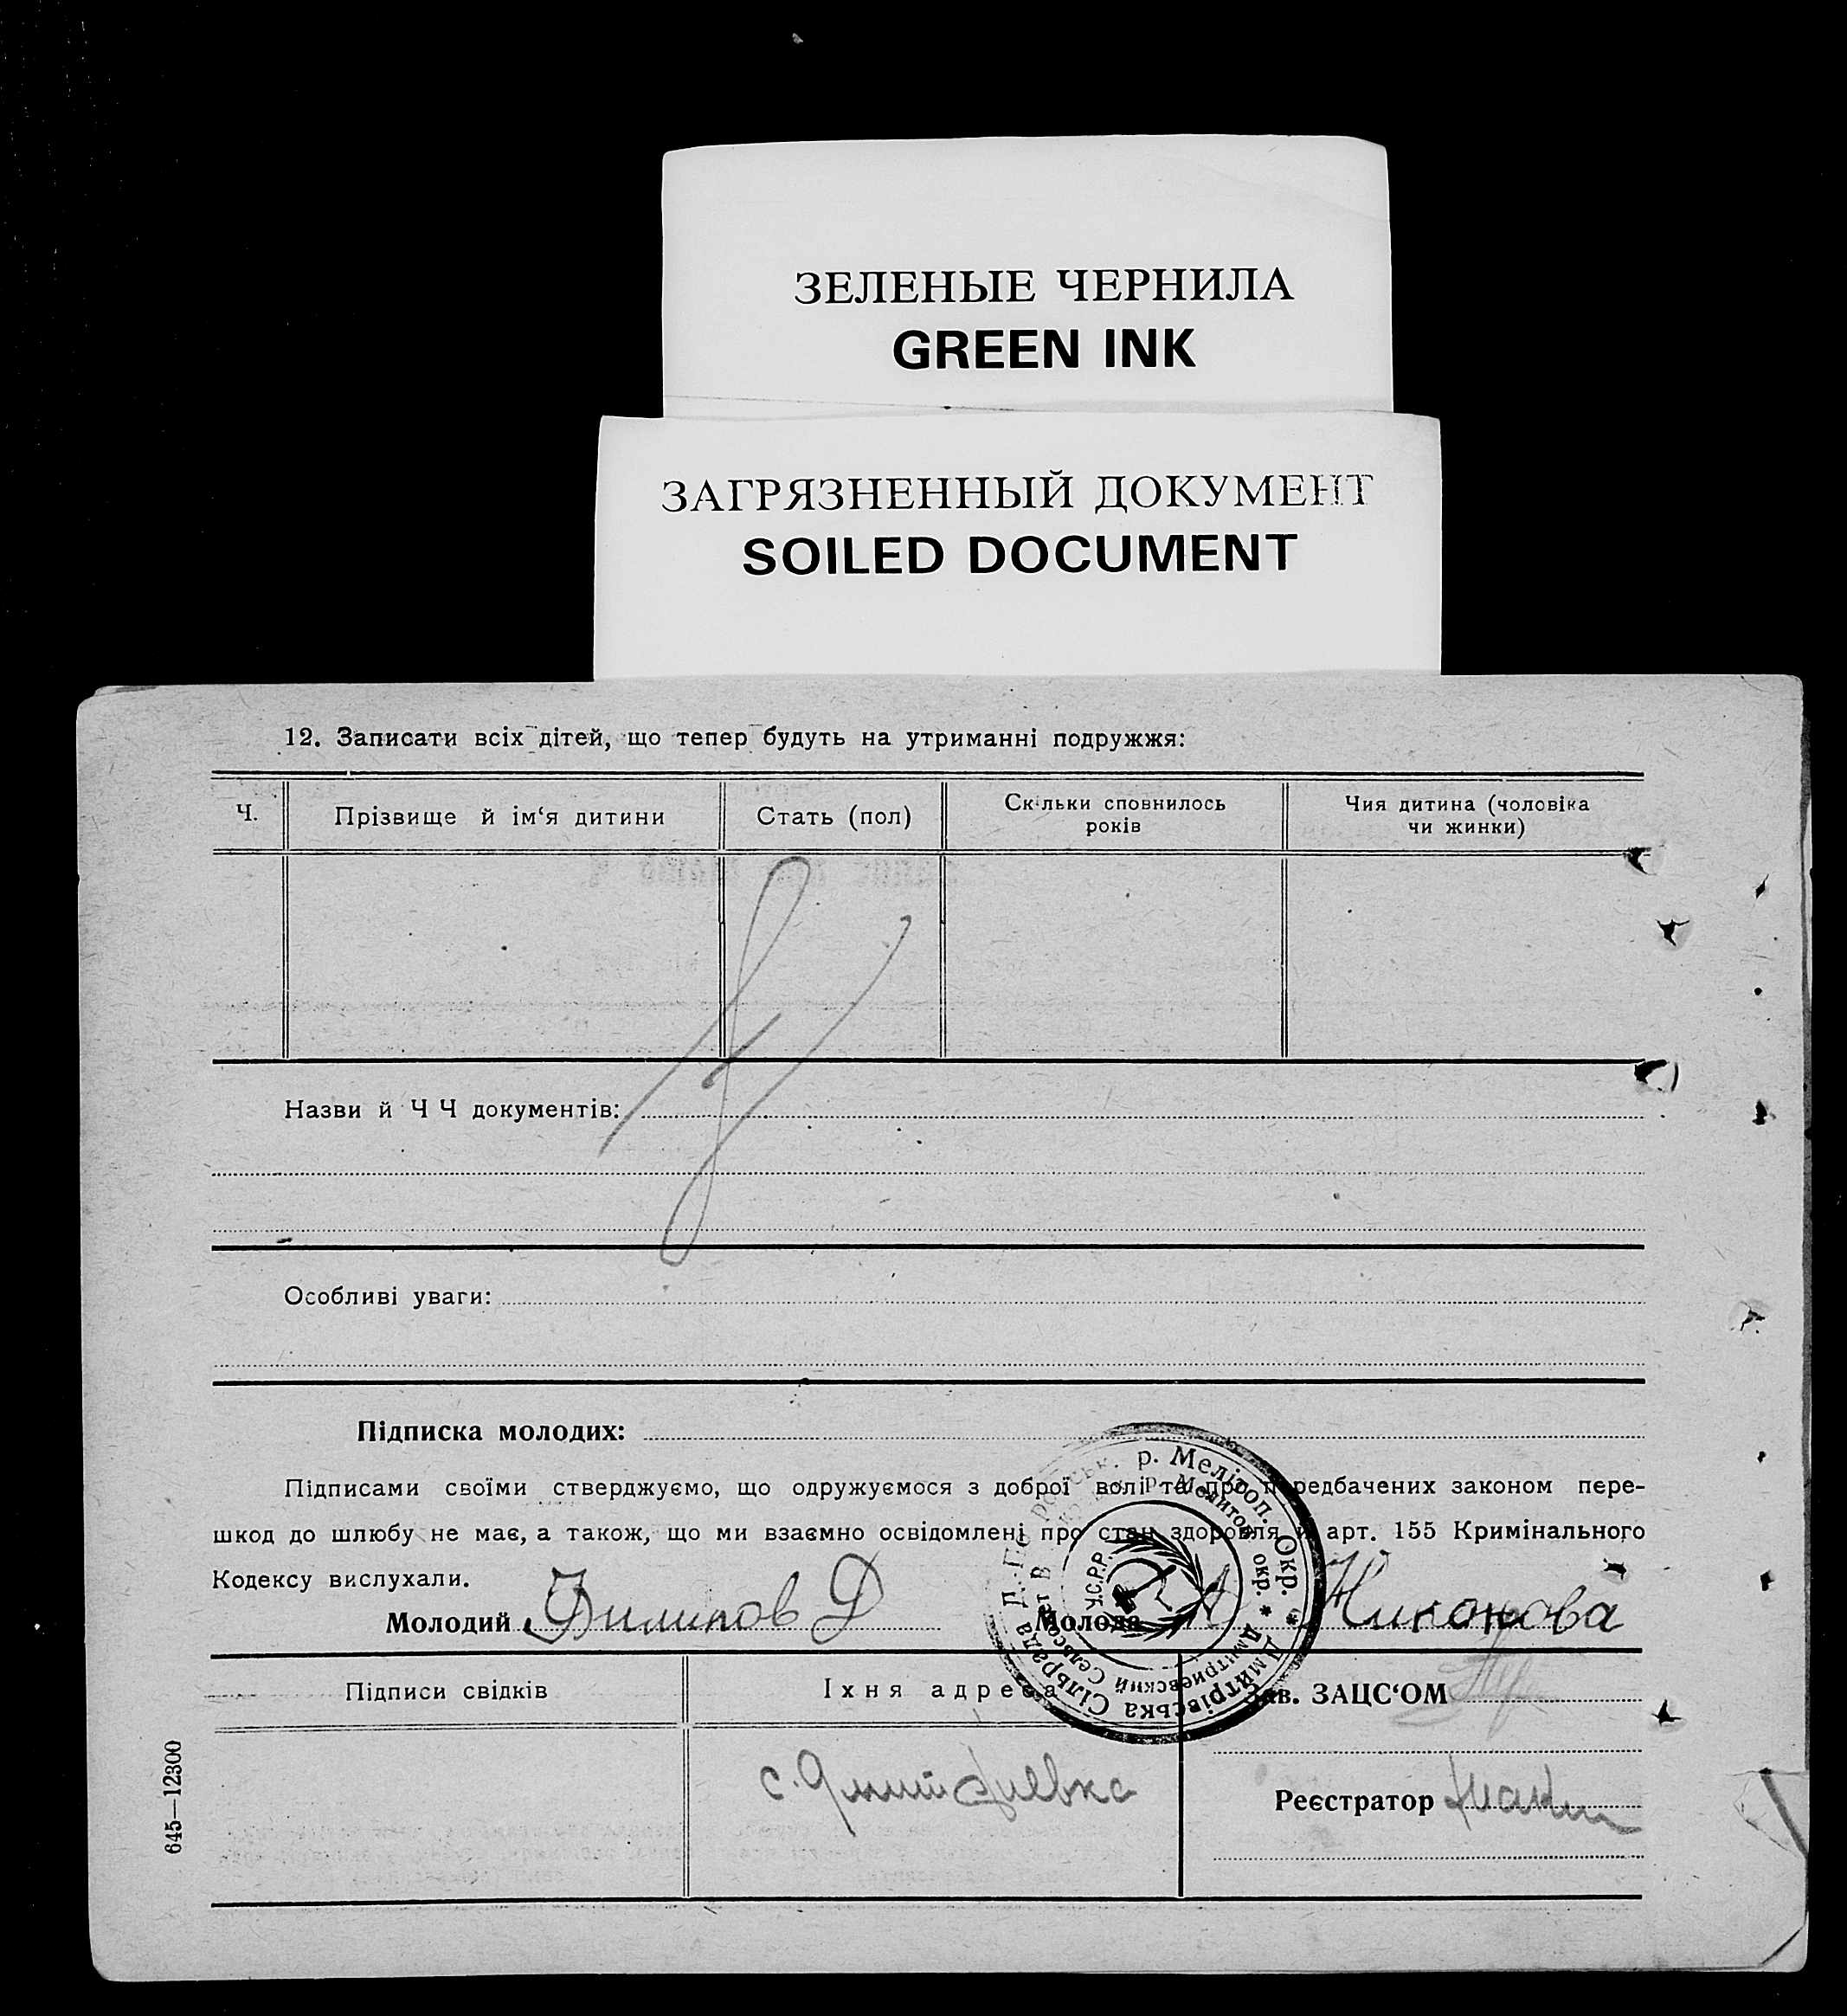 ЗЕЛЕНЫЕ ЧЕРНИЛА
GREEN INK
ЗАГРЯЗНЕННЫЙ ДОКУМЕНТ
SOILED DOCUMENT
12. Записати всіх дітей, що тепер будуть на утриманні подружжя:
Ч.
Прізвище й ім‘я дитини
Стать (пол)
Скільки сповнилось
років
Чия дитина (чоловіка
чи жинки)
Назви й Ч Ч документів:
Особливі уваги:
Підписка молодих:
Підписами своїми стверджуємо, що одружуємося з доброї волі та про передбачених законом пере-
шкод до шлюбу не має, а також, що ми взаємно освідомлені про стан здоровля й арт. 155 Кримінального
Кодексу вислухали.
Молодий Филипов Д
Молода А Никонова
р. Мелітоп. Окр. * Дмитрівська Сільрада
р. Мелитоп. окр. * Дмитриевский Сельсовет
У.С.Р.Р.
Підписи свідків
Їхня адреса
Зав. ЗАЦС‘ОМ
с. Дмитриевка
Реєстратор
645—12300